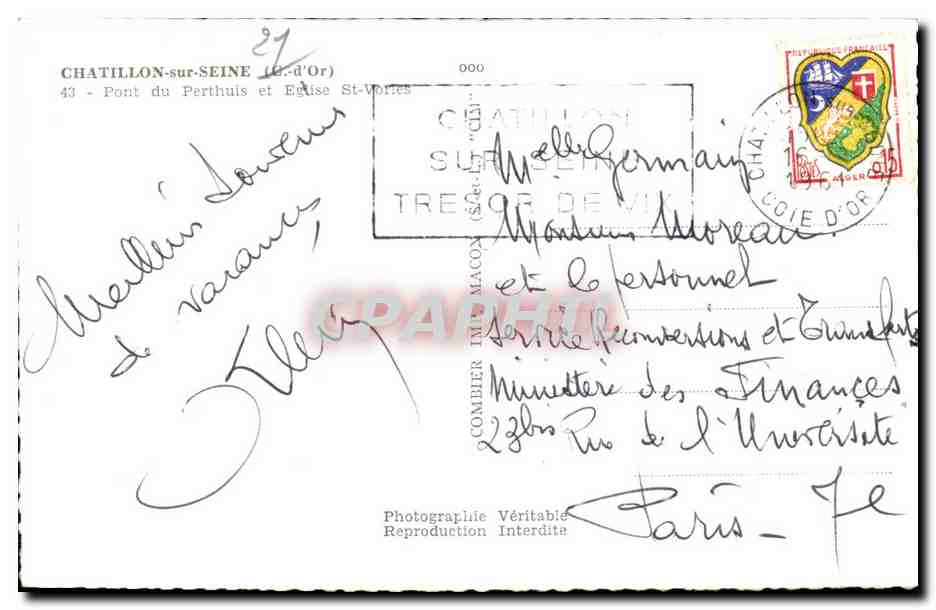 21
CHATILLON-sur-SEINE (C.-d'Or)
43 - Pont du Perthuis et Eglise St-Vorles
ooo
CHATILLON
SUR SEINE
TRESOR DE VIX
REPUBLIQUE FRANÇAISE
POSTES ALGER 0,15
16
1961
COTE D'OR
Meilleurs Souvenirs
de vacances,
Melle Germain
Monsieur Moreau
et le personnel
Service Reconversions et Transferts
Ministère des Finances
23bis Rue de l'Université
Paris - 7e
COMBIER IMP. MACON (S.-et-L.) "CIM"
Photographie Véritable
Reproduction Interdite
CPAPHIL